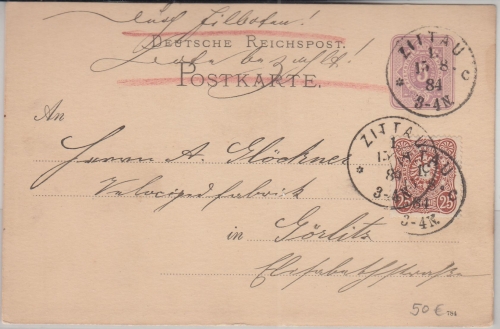 durch Eilboten!
DEUTSCHE REICHSPOST.
Bote bezahlt!
POSTKARTE.
5
ZITTAU
1
15 8
84
3-4N.
* c
An
Herrn A. Glöckner
Velocipedfabrik
in Görlitz
Elisabethstraße
ZITTAU
1
15
84
3-4N
*
25
25
84
3-4N
c
50 €